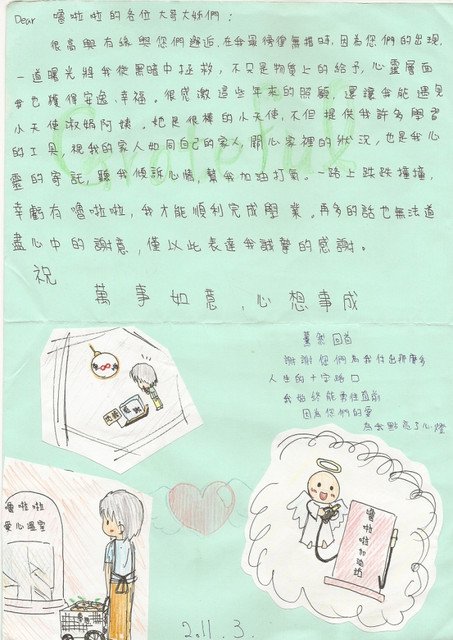 Dear 嚕啦啦的各位大哥大姊們：
很高興有緣與您們邂逅，在我最徬徨無措時，因為您們的出現，
一道曙光將我從黑暗中拯救，不只是物質上的給予，心靈層面
我也獲得安逸、幸福。很感激這些年來的照顧，還讓我能遇見
小天使淑娟阿姨。她是很棒的小天使，不但提供我許多學習
的工具，視我的家人如同自己的家人，關心家裡的狀況，也是我心
靈的寄託，聽我傾訴心情，幫我加油打氣。一路上跌跌撞撞，
幸虧有嚕啦啦，我才能順利完成學業。再多的話也無法道
盡心中的謝意，僅以此表達我誠摯的感謝。
Grateful
祝
萬事如意，心想事成
驀然回首
謝謝您們為我付出那麼多
人生的十字路口
我始終能勇往直前
因為您們的愛
為我點亮了心燈
嚕啦啦
愛心溫室
嚕啦啦加油站
2011.3.